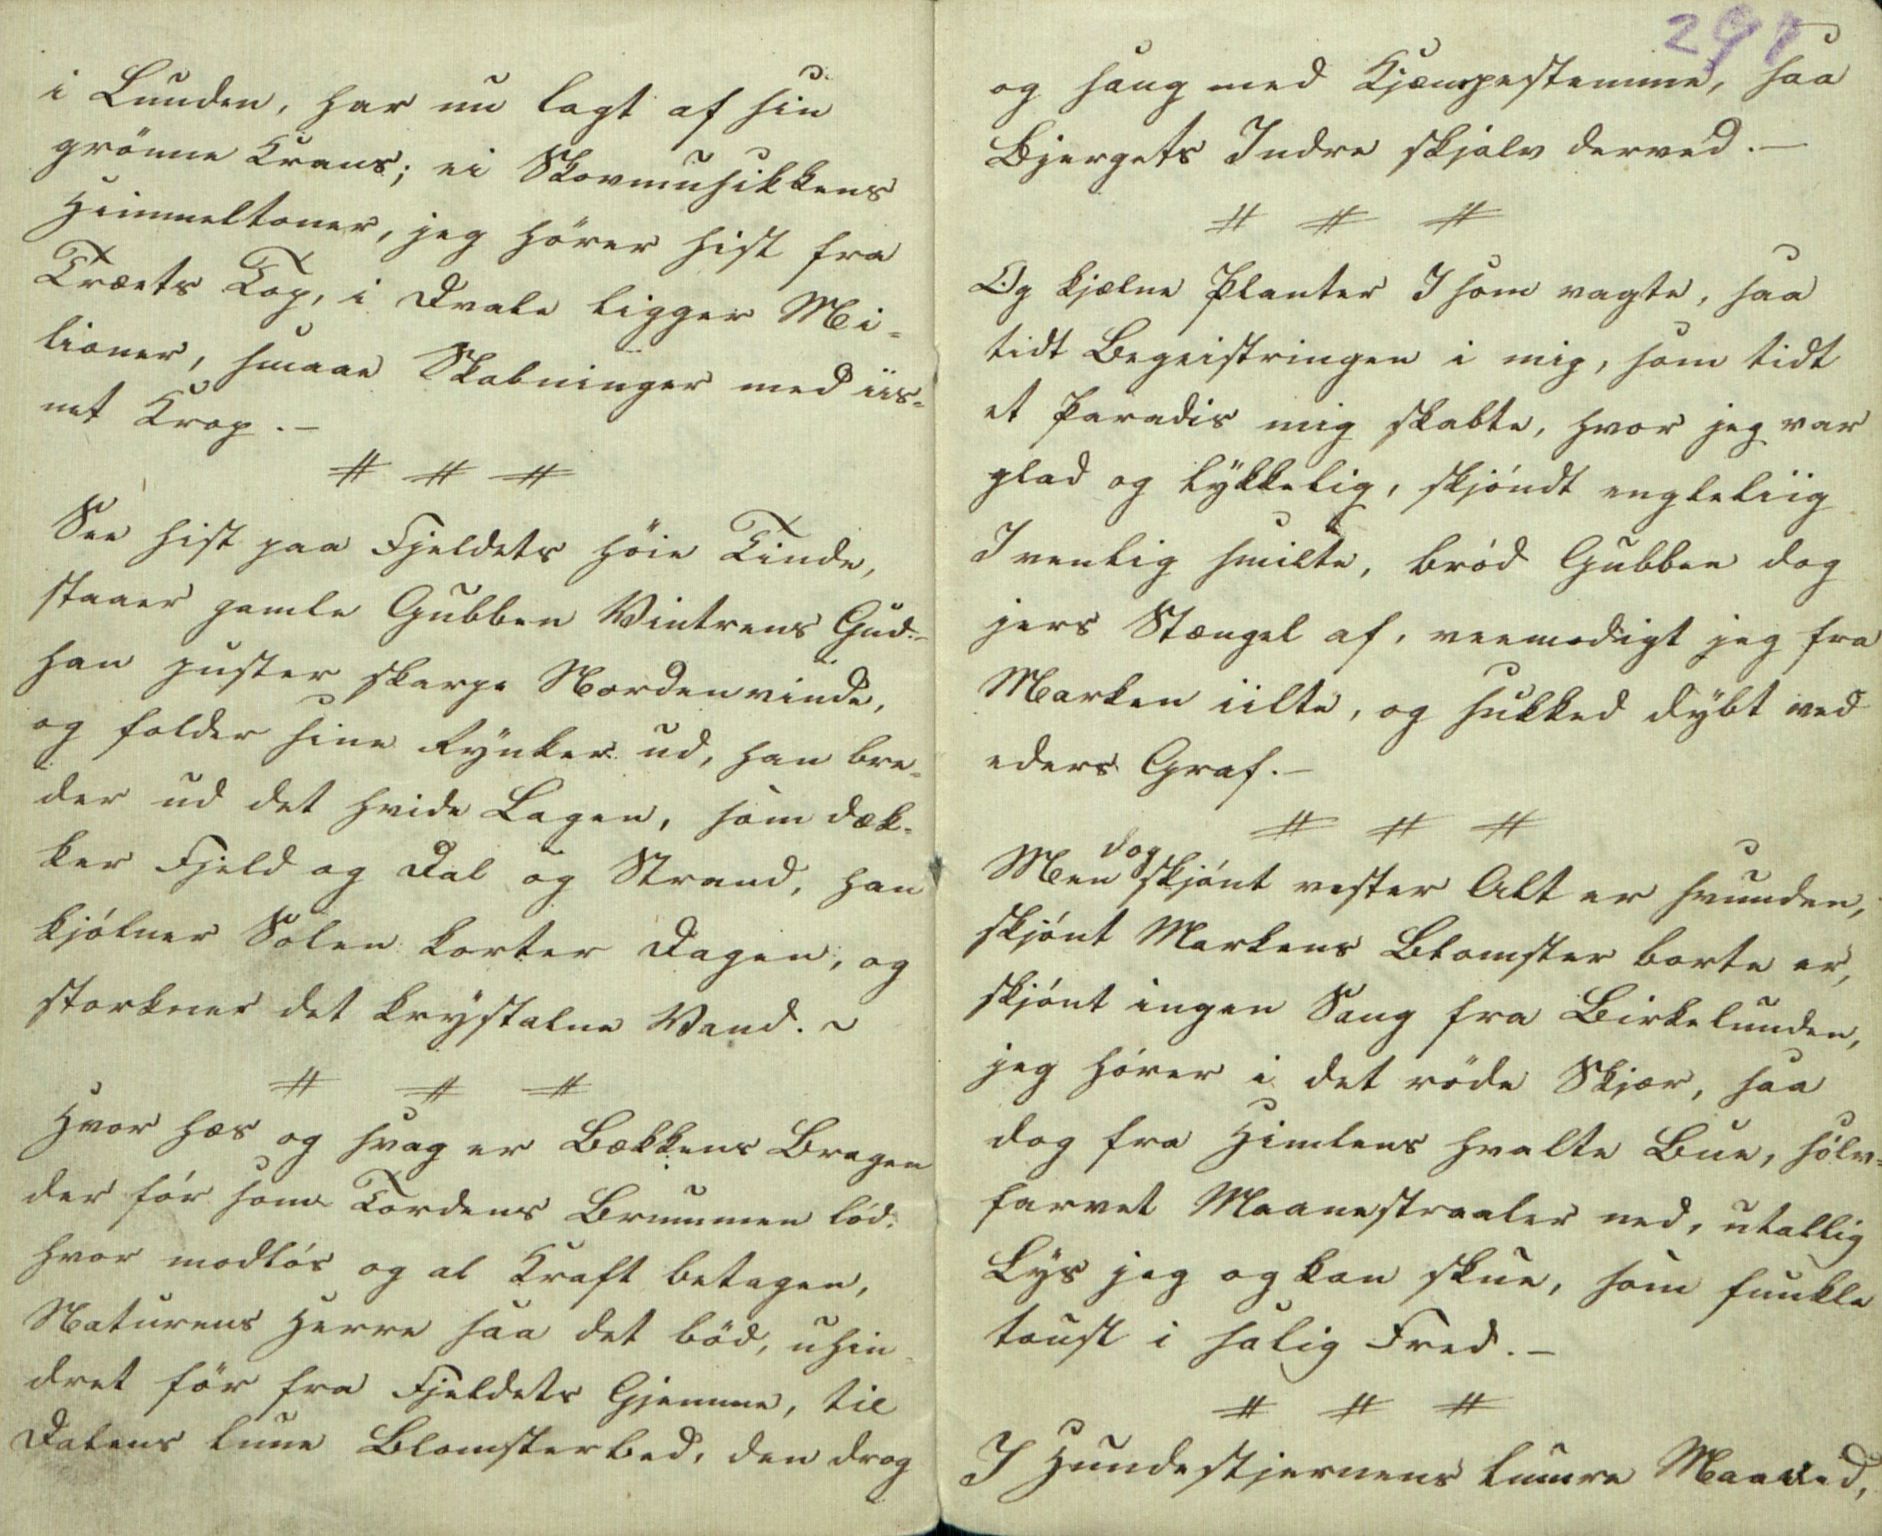 i Lunden, har nu lagt af sin
grönne Krans; ei Skovmusikkens
Himmeltoner, jeg hörer hist fra
Træets Top, i Dvale ligger Mi-
lioner, smaae Skabninger med iis-
net Krop.-
# # #
See hist paa Fjeldets höie Tinde,
staaer gamle Gubben Vintrens Gud.-
han puster skarpe Nordenvinde,
og folder sine Rynker ud, han bre-
der ud det hvide Lagen, som dæk-
ker Fjeld og Dal og Strand, han
kjólner Solen korter Dagen, og
storkner det krystalne Vand. ~
# # #
Hvor hæs og svag er Bækkens Bragen
der för som Tordens Brummen lód.
hvor modlós og al Kraft betagen,
Naturens Herre saa det böd, uhin-
dret för fra Fjeldets Gjemme, til
Dalens lune Blomsterbed, den drog
297
og sang med Kjæmpestemme, saa
Bjergets Indre skjalv derved.-
# # #
Og kjælne Planter I som vagte, saa
tidt Begeistringen i mig, som tidt
et Paradis mig skabte, hvor jeg var
glad og lykkelig, skjóndt engleliig
I venlig smilte, bród Gubben dog
jers Stængel af, veemodigt jeg fra
Marken iilte, og sukked dybt ved
eders Graf.-
# # #
Men dog skjónt vester Alt er svunden,
skjónt Markens Blomster borte er,
skjónt ingen Sang fra Birkelunden,
jeg hórer i det röde Skjær, saa
dog fra Himlens hvalte Bue, sólv-
farvet Maanestraaler ned, utallig
Lys jeg og kan skue, som funkle
taust i salig Fred.-
# # #
I Hundestjernens lumre Maaned,